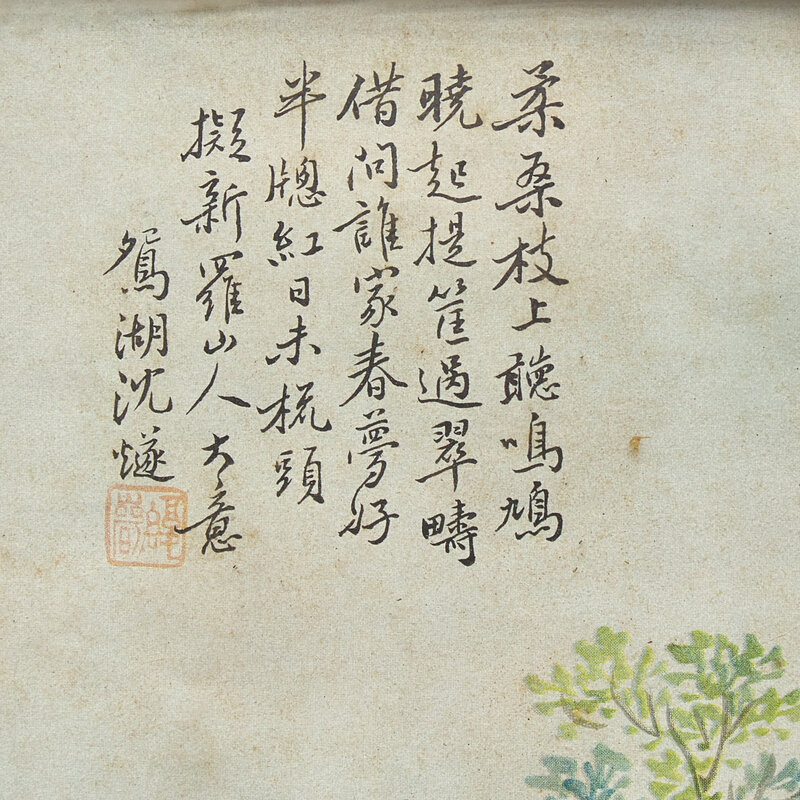 柔桑枝上聽鳴鳩
曉起提筐過翠疇
借問誰家春夢好
半牕紅日未梳頭
擬新羅山人大意
鴛湖沈燧